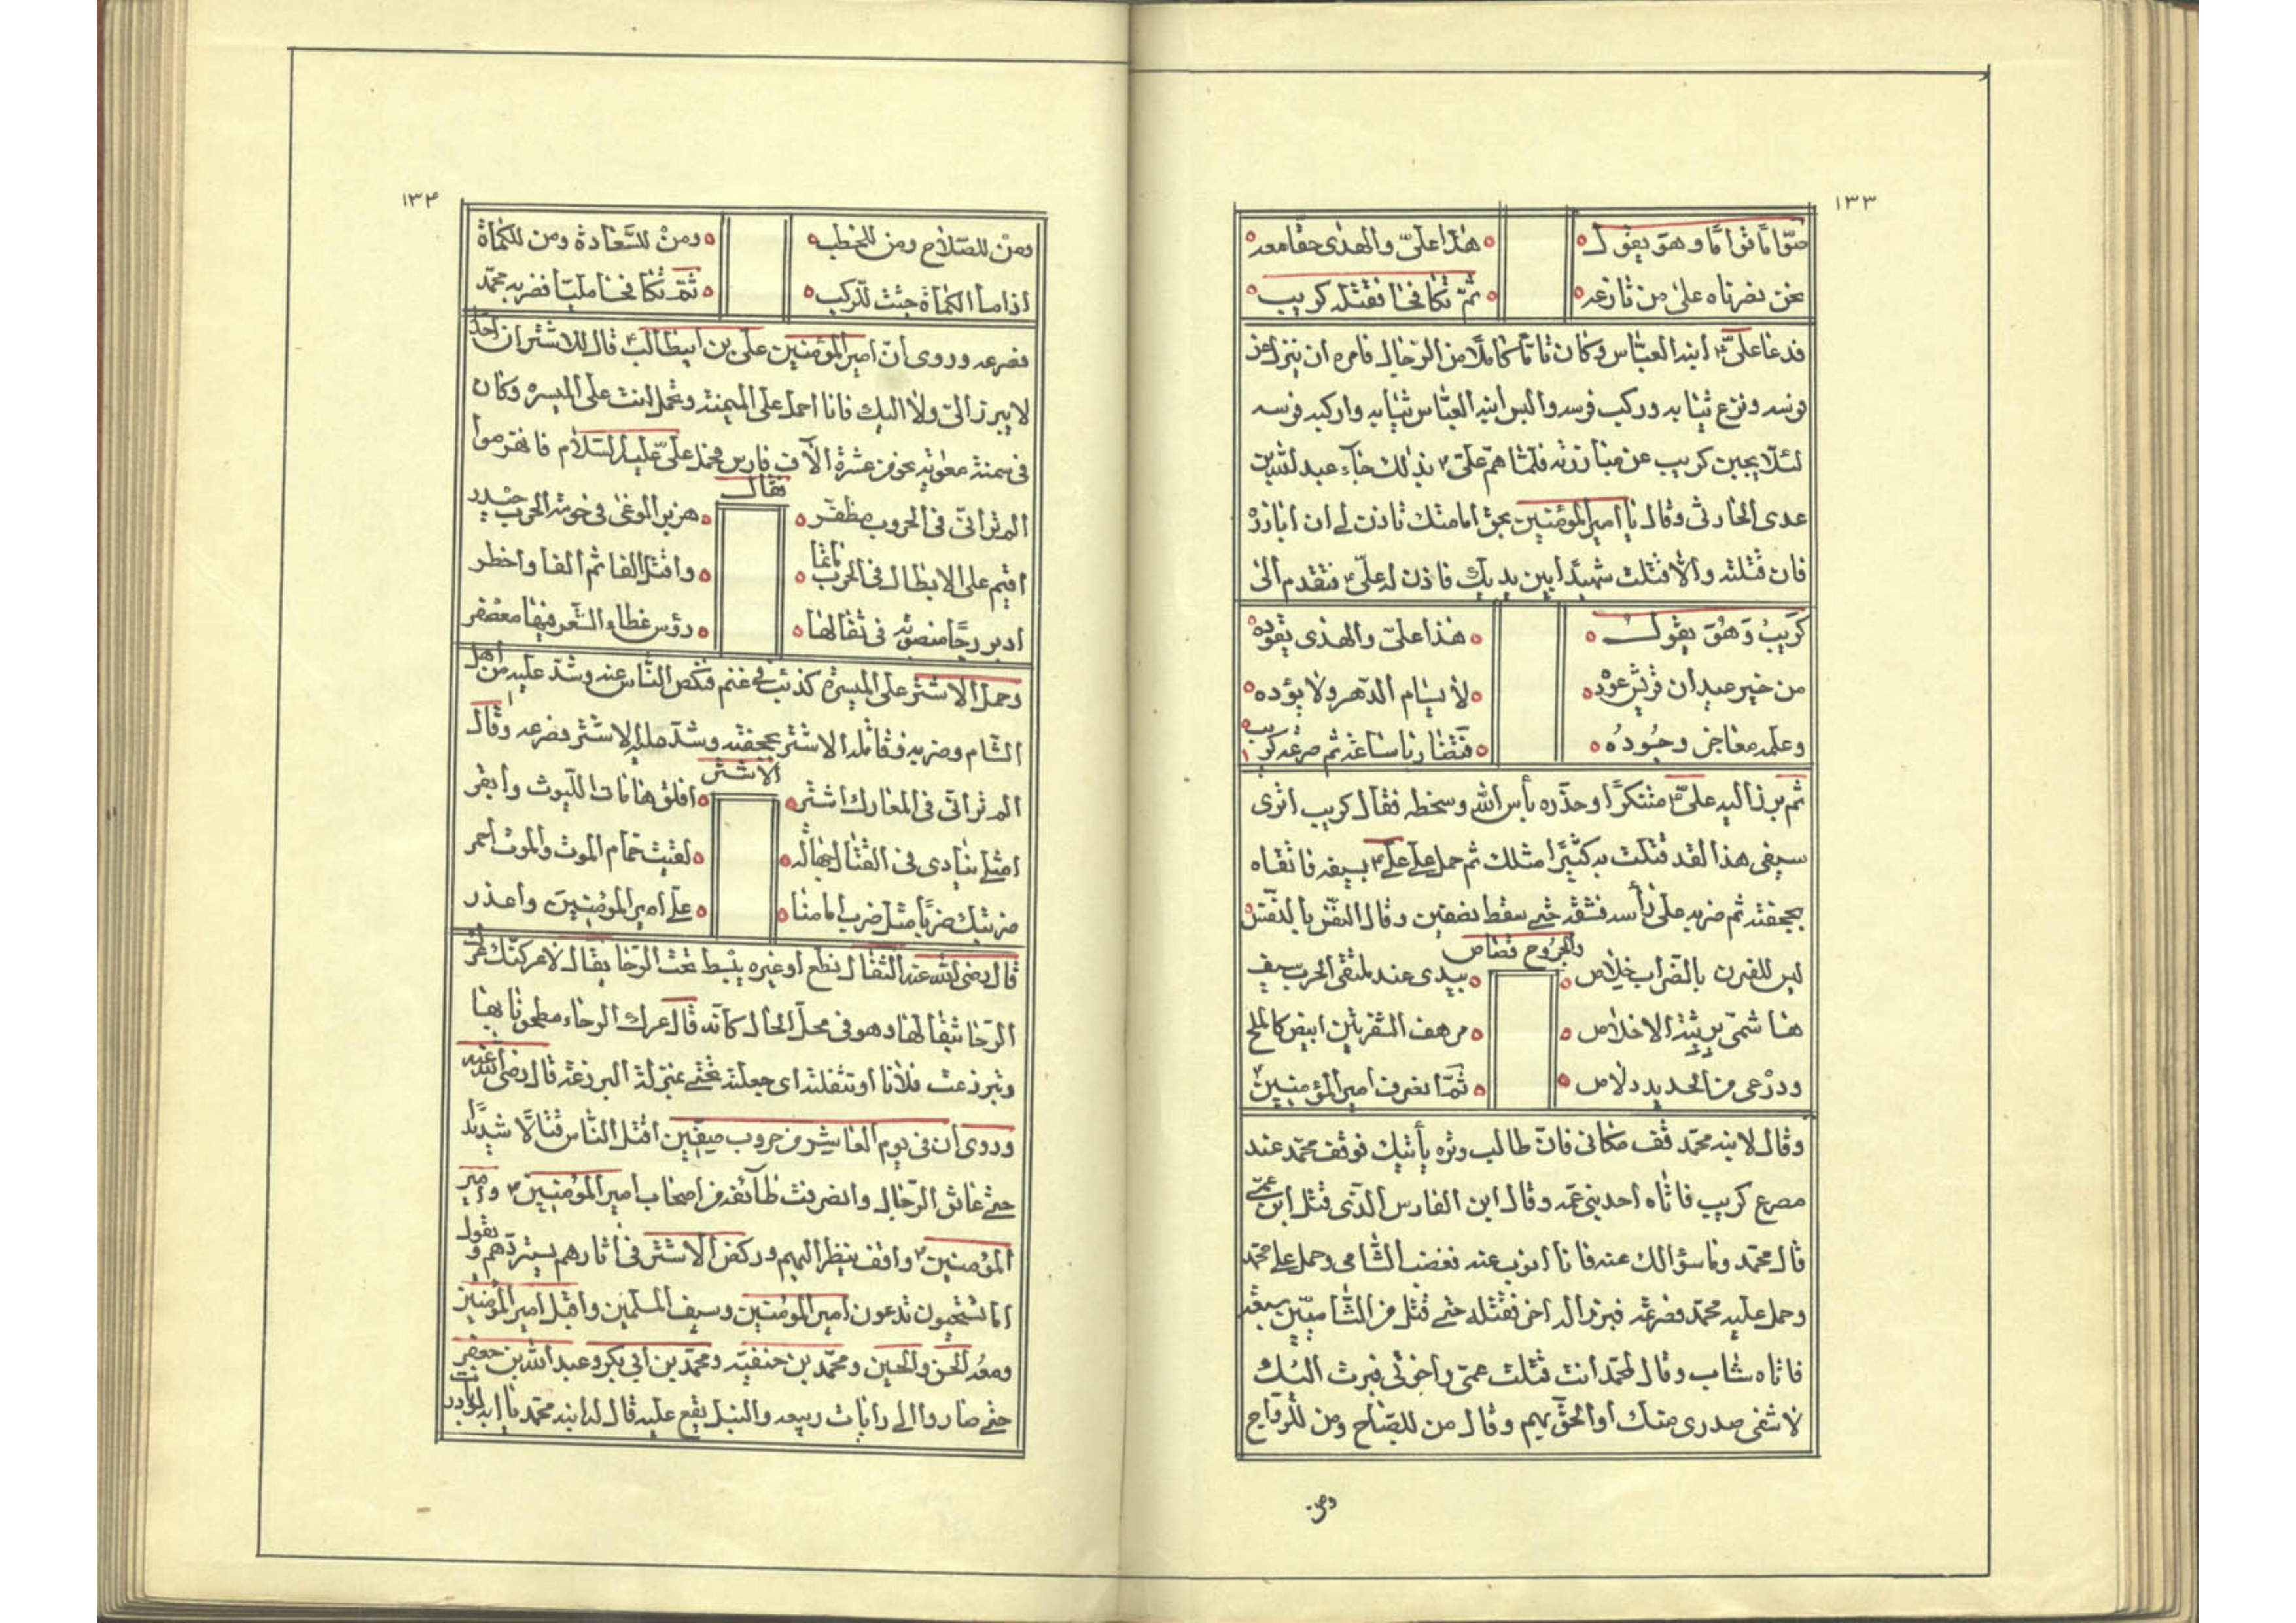 ١٣٣
صوّامًا قوّامًا وهو يقول هذا علىّ والهدى حقًا معه
نحن نصرناه على من نازعه ثمّ تكافحا فقتله كريب
فدعا علىّ ابنه العبّاس وكان تامًّا كاملًا من الرّجال فامره ان ينزل عن
فرسه ونزع ثيابه وركب فرسه والبس ابنه العبّاس ثيابه واركبه فرسه
لئلّا يجبن كريب عن مبارزته فلمّا همّ علىّ بذلك جاء عبد الله بن
عدى الحارثى وقال يا امير المؤمنين بحق امامتك تاذن لى ان ابارزه
فان قتلته والّا قتلت شهيدًا بين يديك فاذن له علىّ فتقدم الى
كريب وهو يقول هذا علىّ والهدى يقوده
من خير عيدان قريش عوده لا يسام الدّهر ولا يؤده
وعلمه معاجز وجوده فتضاربا ساعة ثم صرعه كريب
ثم برز اليه علىّ متنكّرًا وحذّره بأس الله وسخطه فقال كريب اترى
سيفى هذا لقد قتلت به كثيرًا مثلك ثم حمل على علىّ بسيفه فاتقاه
بجحفته ثم ضربه على رأسه فشقّه حتى سقط نصفين وقال النفس بالنفس
والجروح قصاص
ليس للقرن بالضّراب خلاص بيدى عند ملتقى الحرب سيف
هاشمىّ يزينه الاخلاص مرهف الشفرتين ابيض كالملح
ودرعى من الحديد دلاص ثمّ انصرف امير المؤمنين
وقال لابنه محمّد قف مكانى فانّ طالب وتره يأتيك فوقف محمّد عند
مصرع كريب فاتاه احد بنى عمّه وقال اين الفارس الّذى قتل ابن عمّى
قال محمّد وما سؤالك عنه فانا انوب عنه فغضب الشّامى وحمل على محمّد
وحمل عليه محمّد فصرعه فبرز اليه اخر فقتله حتى قتل من الشّاميّين سبعة
فاتاه شاب وقال لمحمّد انت قتلت عمّى واخوتى فبرزت اليك
لاشفى صدرى منك او الحق بهم وقال من للصّباح ومن للرّواح
ومن
١٣٤
ومن للصّلاح ومن للخطب ومن للسّعادة ومن للكماة
اذا ما الكماة جثت للركب ثمّ تكافحا مليّا فضربه محمّد
فصرعه وروى انّ امير المؤمنين على بن ابيطالب قال للاشتر ان احدًا
لا يبرز الىّ ولا اليك فانا احمل على الميمنة وتحمل انت على الميسرة وكان
فى ميمنة معوية نحو من عشرة الآف فارس فحمل علىّ عليه السّلام فانهزموا
فقال
الم تر انّى فى الحروب مظفّر هزبر الوغى فى حومة الحرب حيدر
اقيم على الابطال فى الحرب وا قتل الفا ثم الفا واخطر
ادير رحًا منصوبة فى ثفالها رؤس غطاء الشعر فيها معصفر
وحمل الاشتر على الميسرة كذئب فى غنم فنكص النّاس عنه وشدّ عليه من اهل
الشّام وضربه فوقاه الاشتر بجحفته وشدّ عليه الاشتر فصرعه وقال
الاشتر
الم تر انّى فى المعارك اشتر افلق هامات اللّيوث وابقر
امثلى ينادى فى القتال لقيت حمام الموت والموت احمر
ضربتك ضربًا مثل ضرب امامنا على امير المؤمنين واعذر
قال رضى الله عنه الثفال نطع او غيره يبسط تحت الرّحا يقال لاعركنّك عرك
الرّحا بثفالها وهو فى محلّ الحال كانّه قال عرك الرحاء مطحونا بها
وتبرذعت فلانا او تثفلته اى جعلته تحتى بمنزلة البرذعة قال رضى الله عنه
وروى ان فى يوم العاشر من حروب صفّين اقتتل النّاس قتالًا شديدًا
حتى عانق الرّجال وانصرفت طائفة من اصحاب امير المؤمنين وامير
المؤمنين واقف ينظر اليهم وركض الاشتر فى اثارهم يستردّهم ويقول
اما تستحيون تدعون امير المؤمنين وسيف المسلمين واقبل امير المؤمنين
ومعه الحسن والحسين ومحمّد بن حنفيّة ومحمّد بن ابى بكر وعبد الله بن جعفر
حتى صاروا الى رايات ربيعه والنبل يقع عليه قال له ابنه محمّد يا ابه لو بادرت